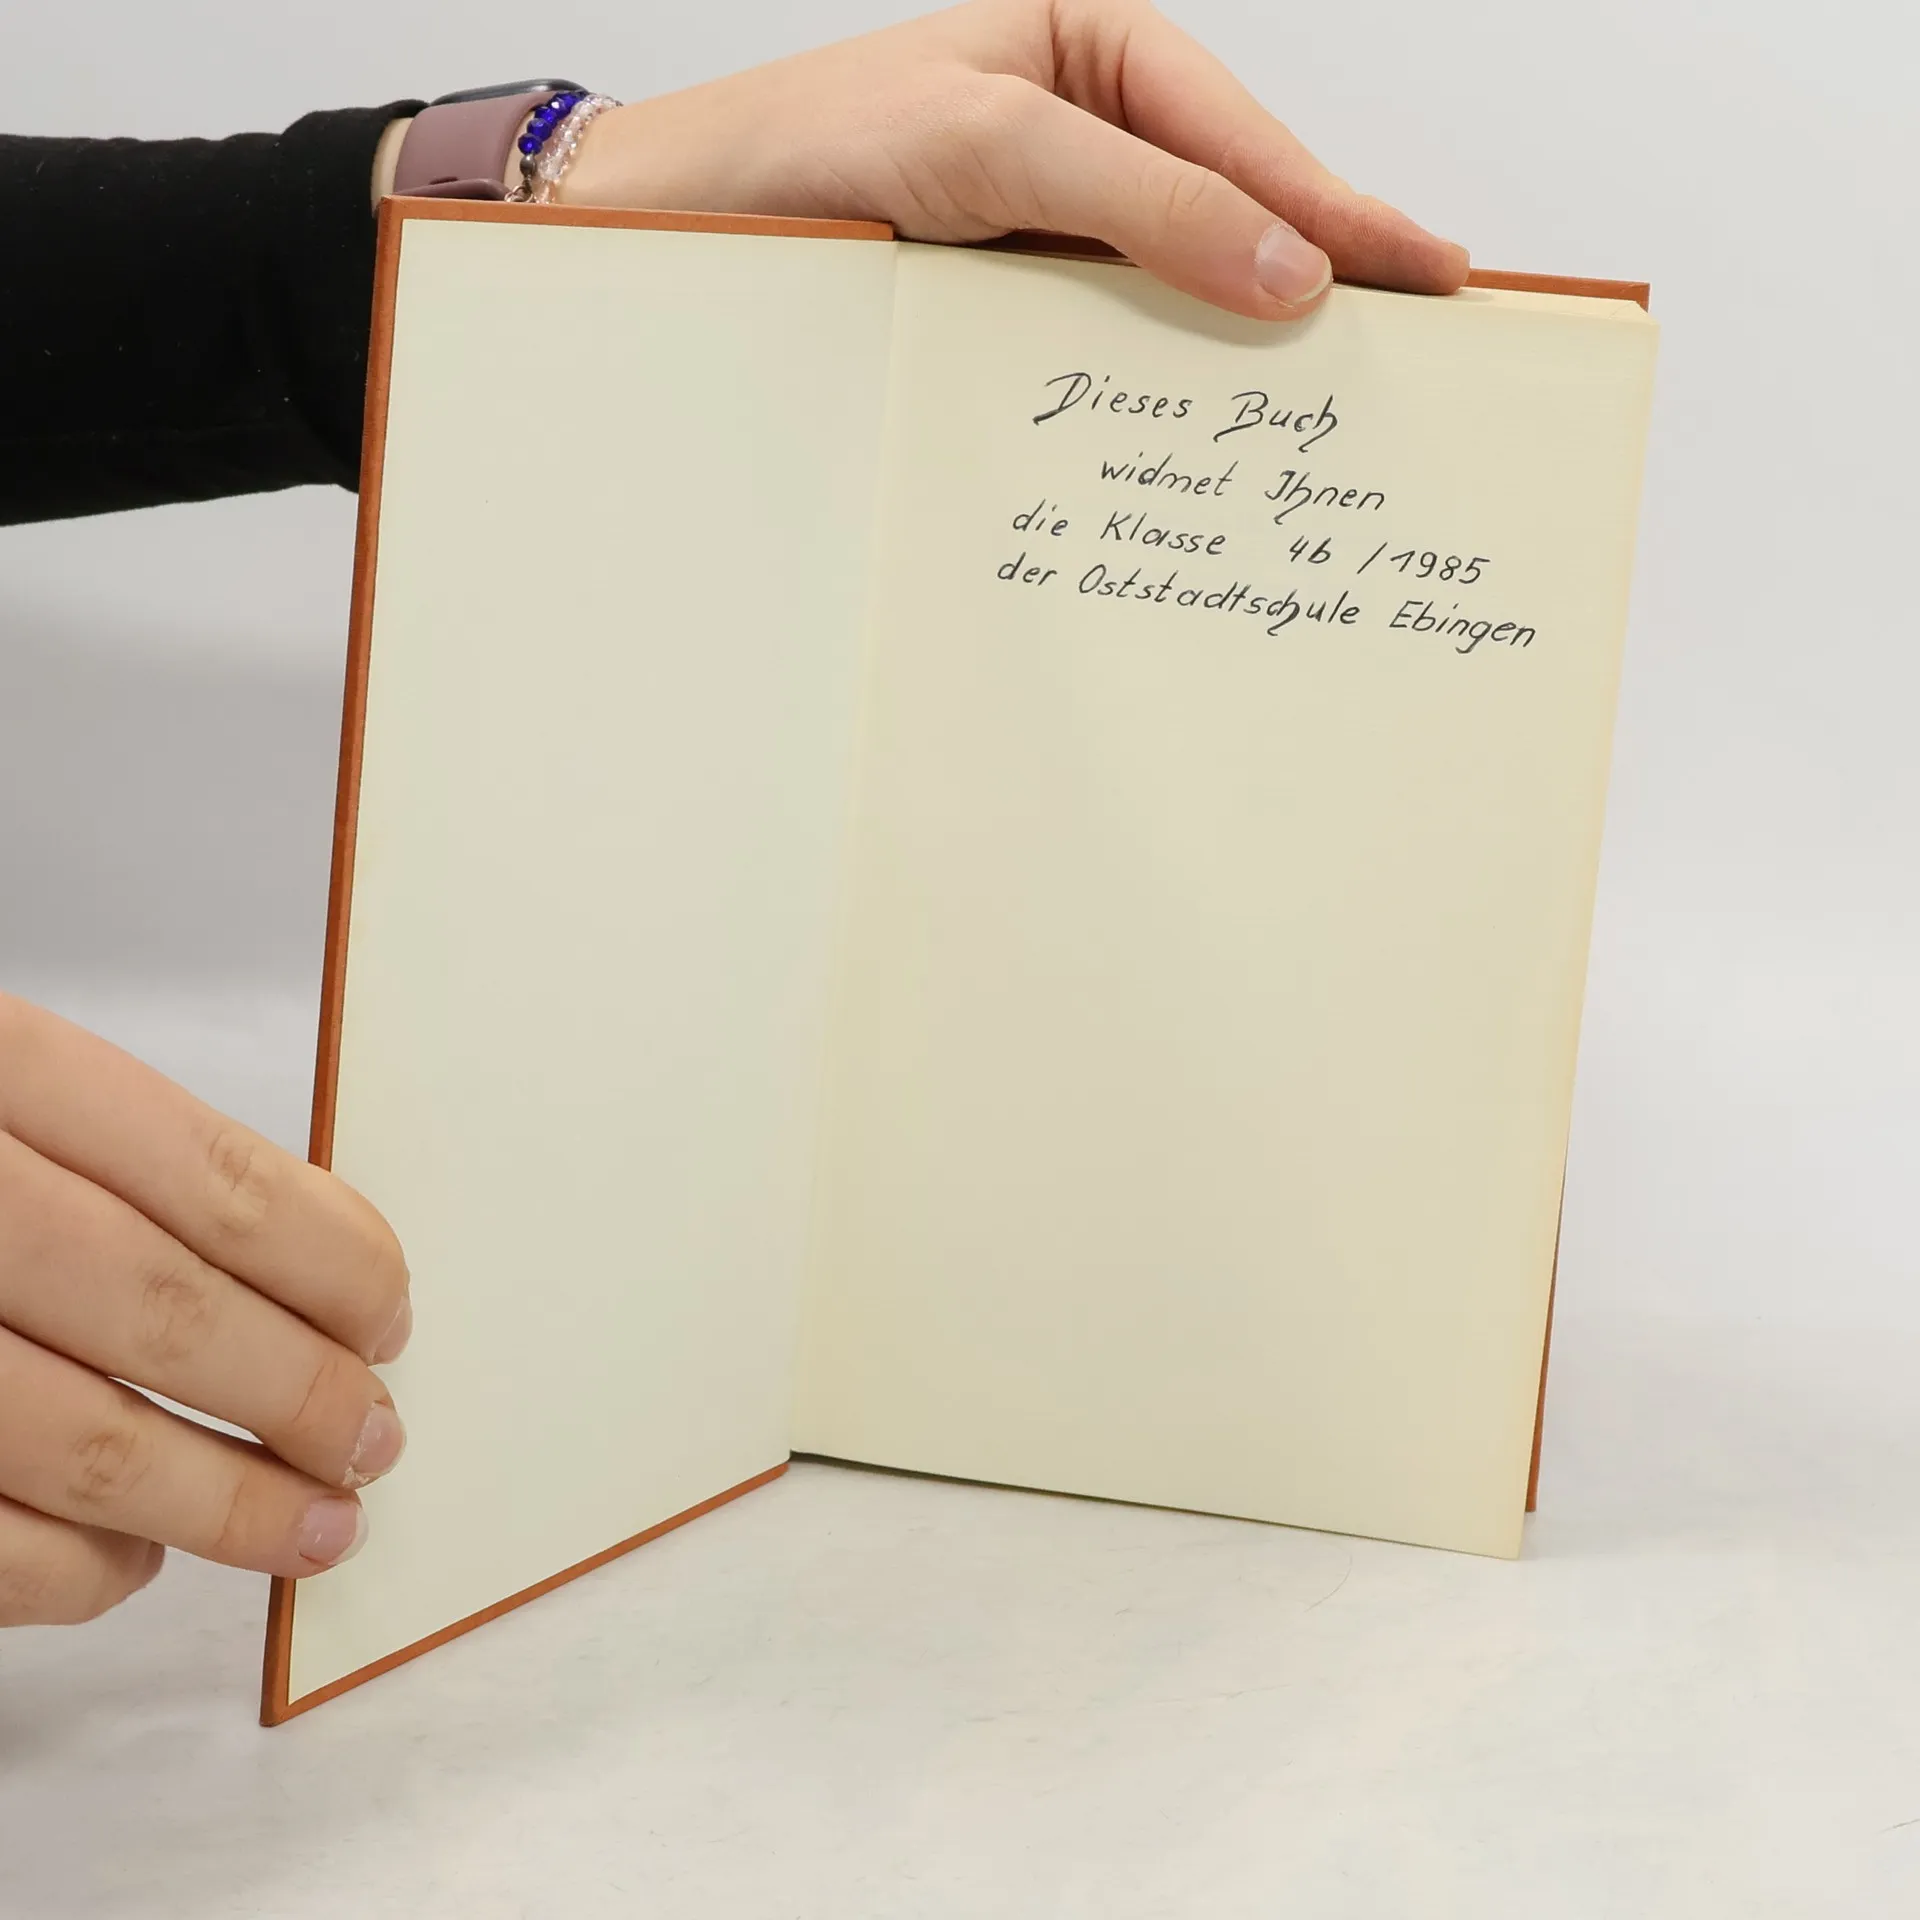 Dieses Buch
widmet Ihnen
die Klasse 4b /1985
der Oststadtschule Ebingen